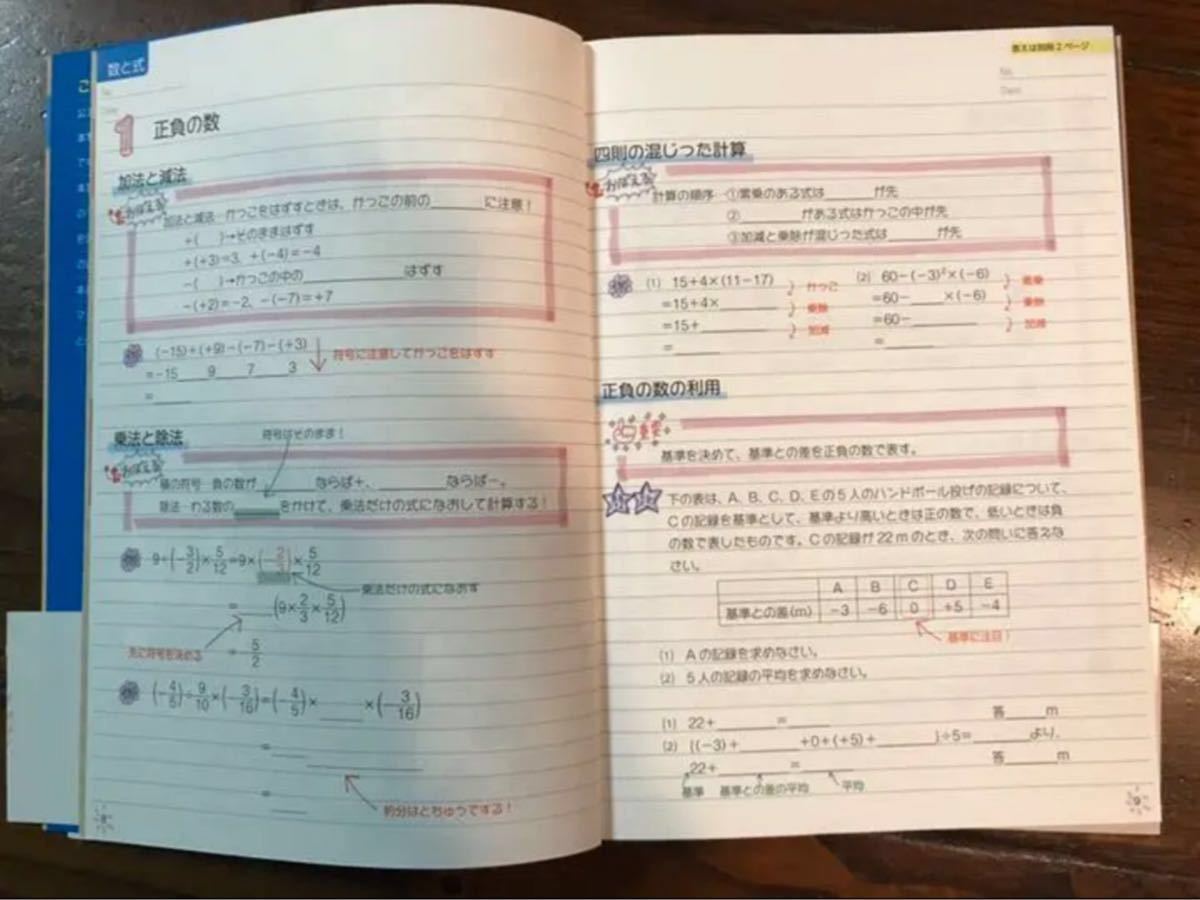 数と式
No.
Date
1 正負の数
加法と減法
おぼえる
加法と減法…かっこをはずすときは、かっこの前の______に注意！
+( )→そのままはずす
+(+3)=3、+(-4)=-4
-( )→かっこの中の______はずす
-(+2)=-2、-(-7)=+7
(-15)+(+9)-(-7)-(+3)
符号に注意してかっこをはずす
=-15____9____7____3
=____
乗法と除法
符号はそのまま！
おぼえる
積の符号…負の数が______ならば+、______ならば-。
除法…わる数の____をかけて、乗法だけの式になおして計算する！
9÷(-3/2)×5/12=9×(-2/3)×5/12
乗法だけの式になおす
=____(9×2/3×5/12)
先に符号を決める
=5/2
(-4/5)÷9/10×(-3/16)=(-4/5)×____×(-3/16)
=____ ______
=____
約分はとちゅうでする！
8
答えは別冊2ページ
No.
Date
四則の混じった計算
おぼえる
計算の順序…①累乗のある式は______が先
②______がある式はかっこの中が先
③加減と乗除が混じった式は______が先
(1) 15+4×(11-17)
かっこ
=15+4×______
乗除
=15+______
加減
=____
(2) 60-(-3)²×(-6)
累乗
=60-____×(-6)
乗除
=60-______
加減
=____
正負の数の利用
重要
基準を決めて、基準との差を正負の数で表す。
下の表は、A、B、C、D、Eの5人のハンドボール投げの記録について、
Cの記録を基準として、基準より高いときは正の数で、低いときは負
の数で表したものです。Cの記録が22mのとき、次の問いに答えな
さい。
A B C D E
基準との差(m) -3 -6 0 +5 -4
基準に注目！
(1) Aの記録を求めなさい。
(2) 5人の記録の平均を求めなさい。
(1) 22+______=____ 答____m
(2) {(-3)+______+0+(+5)+______}÷5=______より、
22+______=____ 答____m
基準 基準との差の平均 平均
9